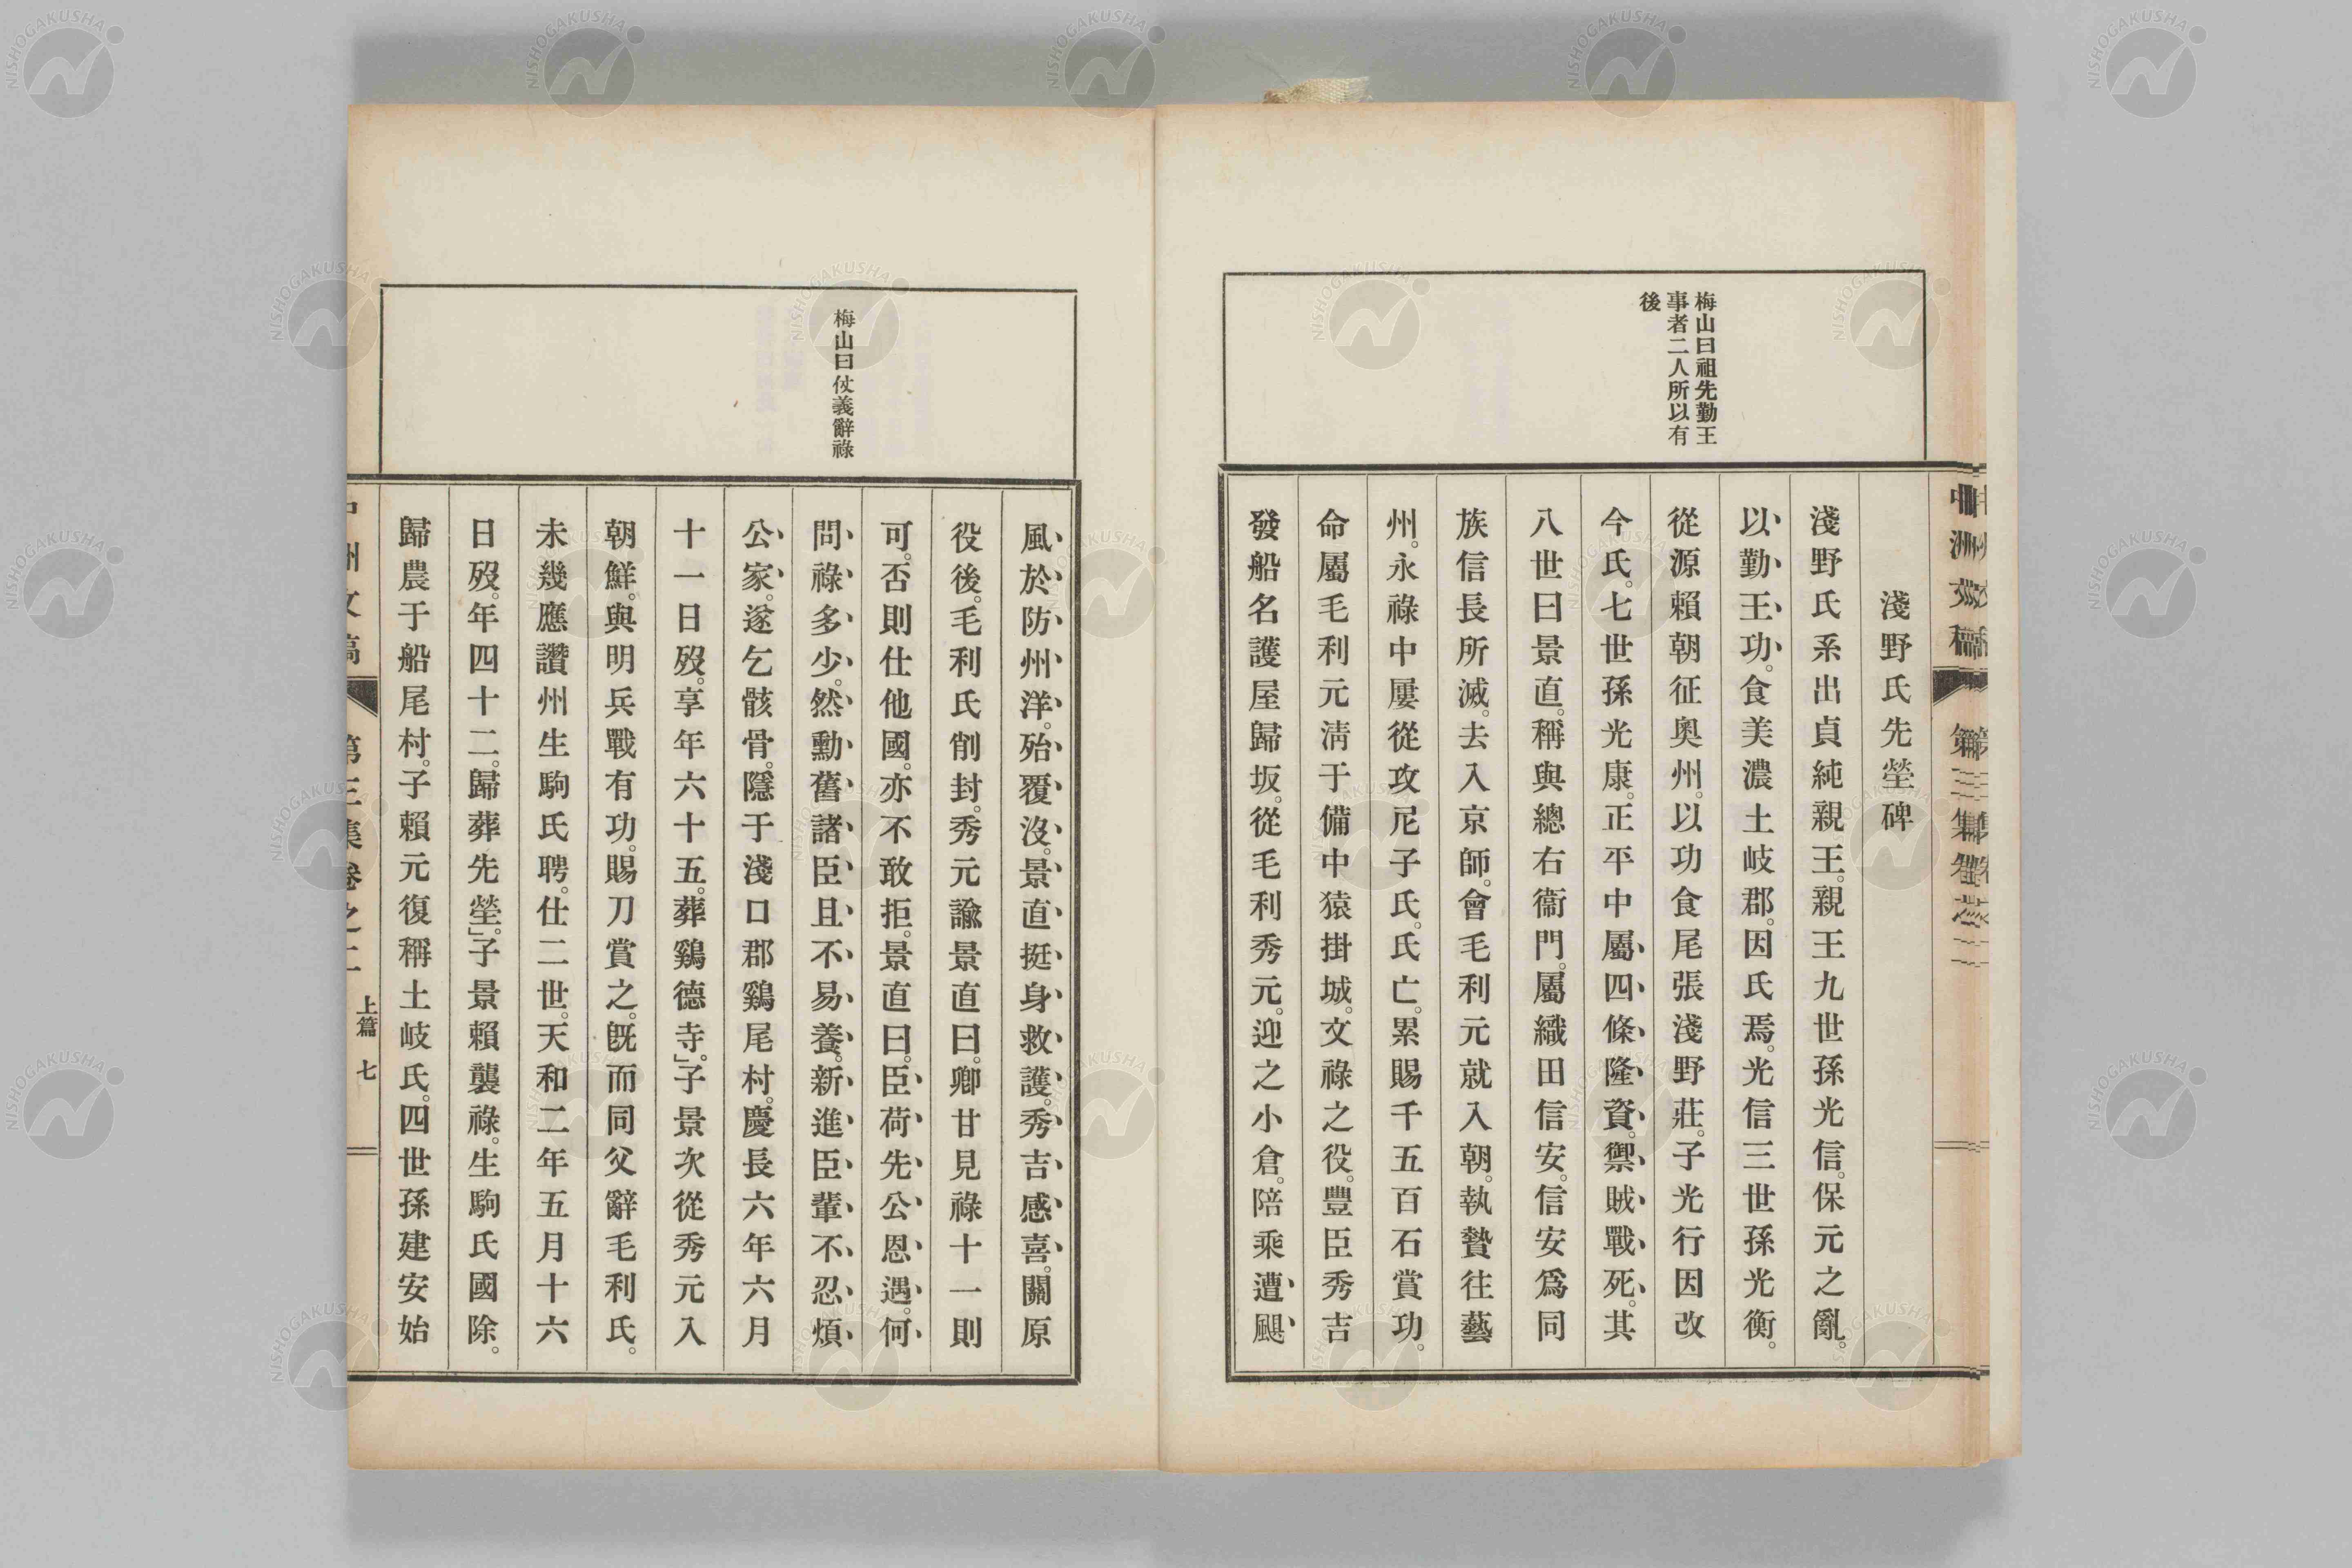 梅山曰祖先勤王
事者二人所以有
後
淺野氏先塋碑
淺野氏系出貞純親王。親王九世孫光信。保元之亂。
以勤王功。食美濃土岐郡。因氏焉。光信三世孫光衡。
從源賴朝征奥州。以功食尾張淺野莊。子光行因改
今氏。七世孫光康。正平中屬四條隆資。禦賊戰死。其
八世曰景直。稱與總右衞門。屬織田信安。信安爲同
族信長所滅。去入京師。會毛利元就入朝。執贄往藝
州。永祿中屢從攻尼子氏。氏亡。累賜千五百石賞功。
命屬毛利元淸于備中猿掛城。文祿之役。豐臣秀吉
發船名護屋歸坂。從毛利秀元。迎之小倉。陪乘遭颶
梅山曰仗義辭祿
風於防州洋。殆覆沒。景直挺身救護。秀吉感喜。關原
役後。毛利氏削封。秀元諭景直曰。卿甘見祿十一則
可。否則仕他國。亦不敢拒。景直曰。臣荷先公恩遇。何
問祿多少。然勳舊諸臣。且不易養。新進臣輩。不忍煩
公家。遂乞骸骨。隱于淺口郡鷄尾村。慶長六年六月
十一日歿。享年六十五。葬鷄德寺。」子景次從秀元入
朝鮮。與明兵戰有功。賜刀賞之。旣而同父辭毛利氏。
未幾應讚州生駒氏聘。仕二世。天和二年五月十六
日歿。年四十二。歸葬先塋。」子景賴襲祿。生駒氏國除。
歸農于船尾村。子賴元復稱土岐氏。四世孫建安始
中洲文稿 第三集卷之二 上篇 七
NISHOGAKUSHA